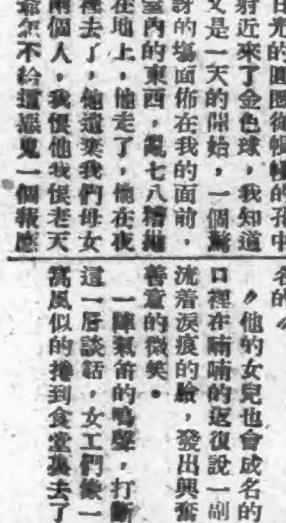 日光的圓圈從幔幃的孔中
射近來了金色球，我知道
又是一天的開始，一個驚
訝的塲面佈在我的面前，
室內的東西，亂七八糟拋
在地上，他走了，他在夜
裡去了，他遺棄我們母女
兩個人，我恨他我恨老天
爺怎不給這搗鬼一個報應
名的〃
〃他的女兒也會成名的
口裡在喃喃的返復說一副
流着淚痕的臉，發出興奮
善意的微笑。
一陣氣笛的鳴聲，打斷
這一唇談話，女工們像一
窩風似的捲到食堂裏去了